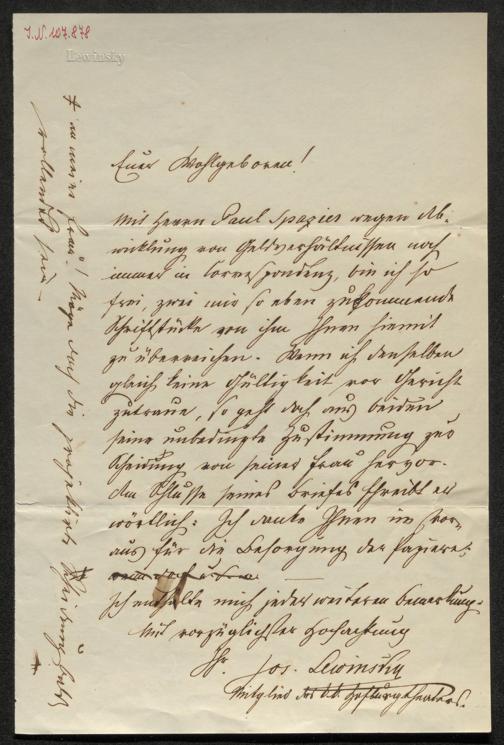 I.N. 107.878
Lewinsky
Euer Wohlgeboren!
Mit Herrn Paul Spazier wegen Ab-
wicklung von Geldverhältnissen noch
immer in Correspondenz, bin ich so
frei, zwei mir so eben zukommende
Schriftstücke von ihm Ihnen hiemit
zu überreichen. Wenn ich denselben
gleich keine Gültigkeit vor Gericht
zutraue, so geht doch aus beiden
seine unbedingte Zustimmung zur
Scheidung von seiner Frau hervor.
Am Schlusse seines Briefes schreibt er
wörtlich: Ich danke Ihnen im Vor-
aus für die Besorgung der Papiere
Ich enthalte mich jeder weiteren Bemerkung.
Mit vorzüglichster Hochachtung
Ihr
Jos. Lewinsky
Mitglied des k.k. Hofburgtheaters.
an meine Frau! Möge doch die projektirte Scheidung bald
vollendet sein